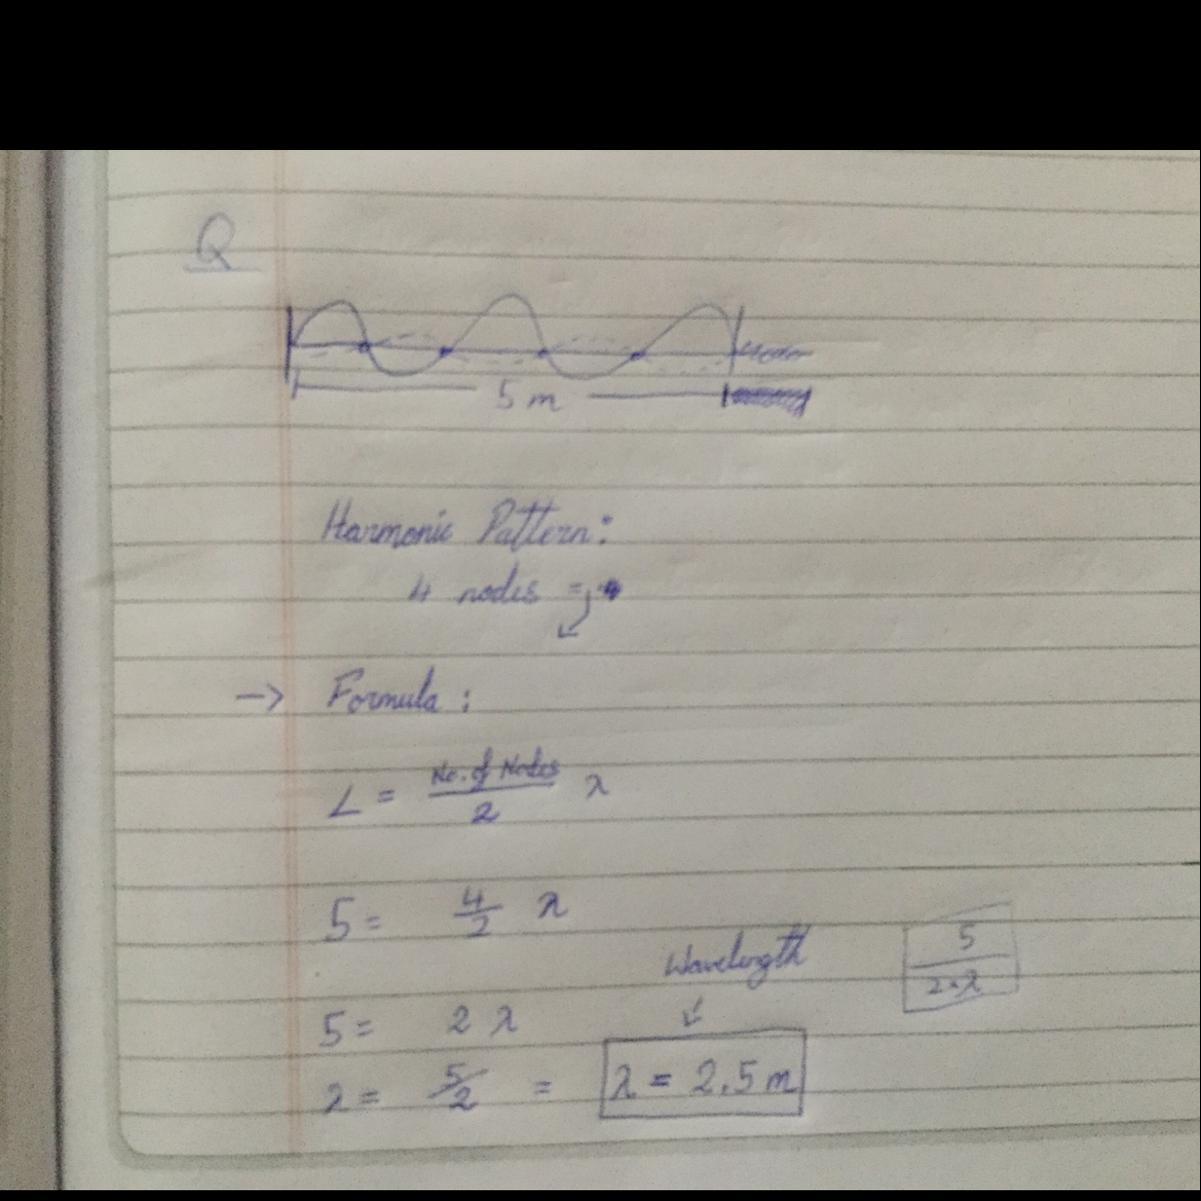 Q
5 m
Harmonic Pattern:
4 nodes =
→ Formula:
L = No. of Nodes / 2 λ
5 = 4/2 λ
Wavelength
5 / 2×λ
5 = 2 λ
λ = 5/2 = λ = 2.5 m